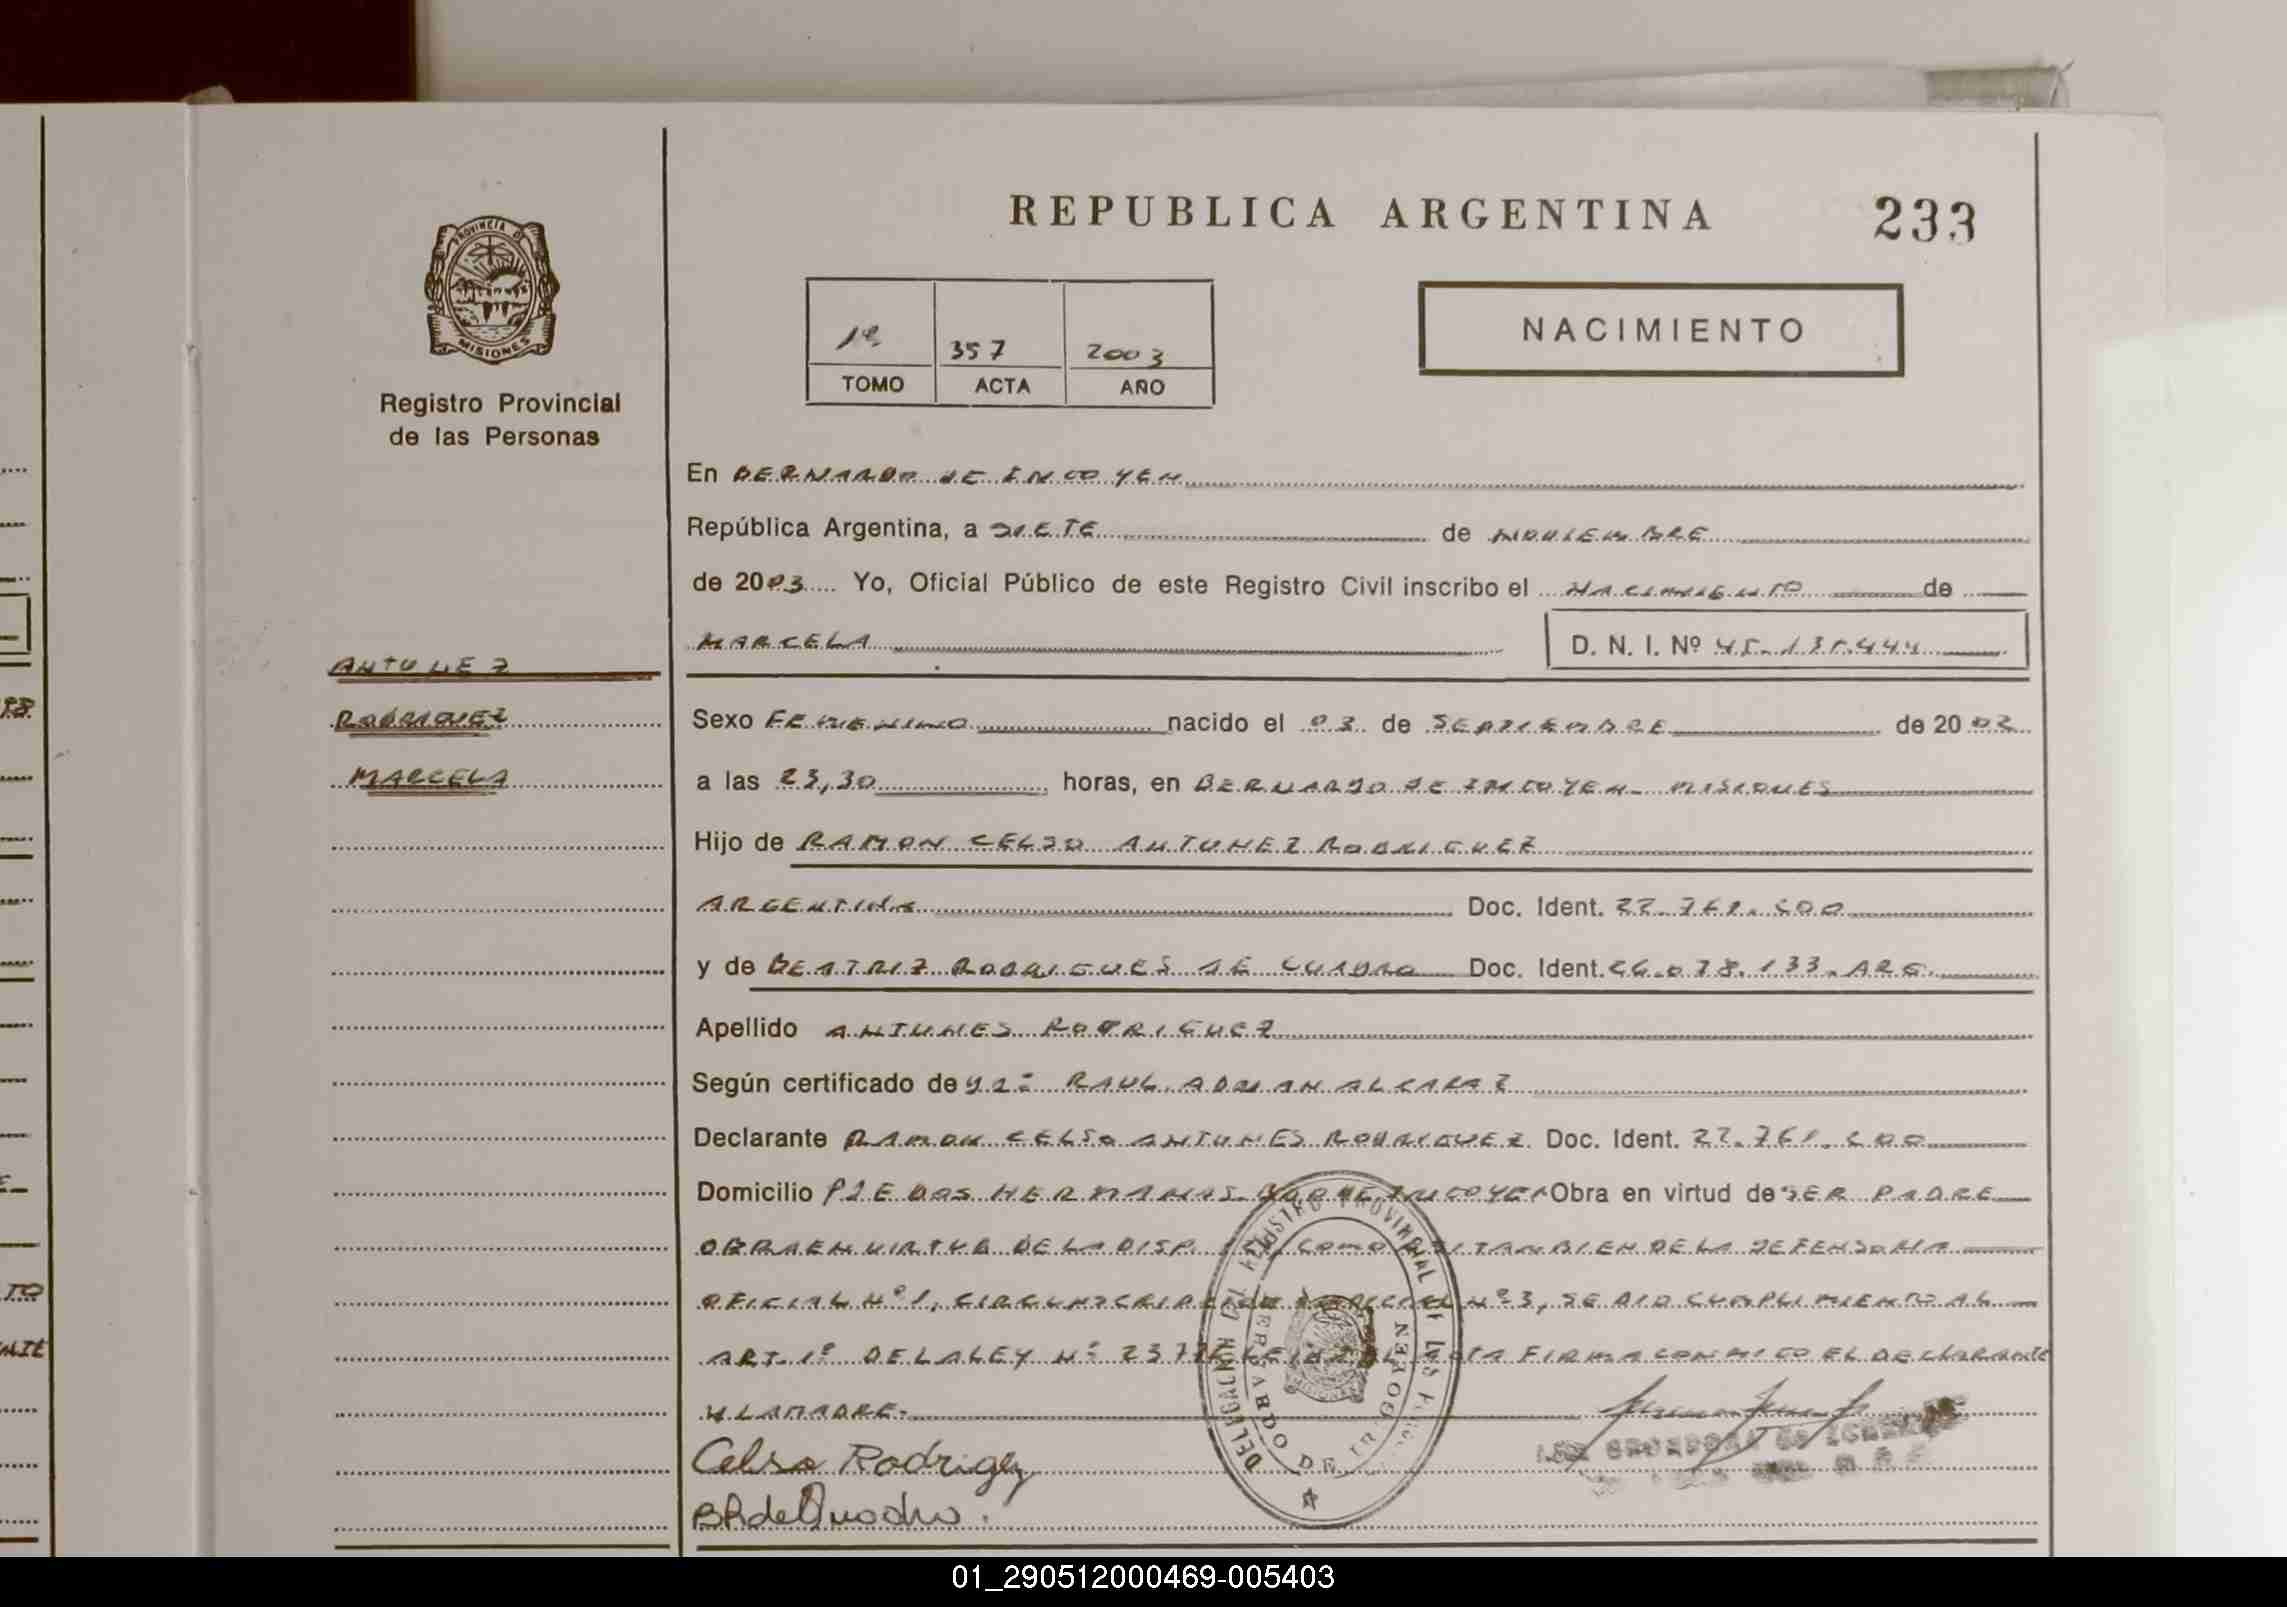 REPUBLICA ARGENTINA
233
PROVINCIA DE
MISIONES
Registro Provincial
de las Personas
1º 357 2003
TOMO ACTA AÑO
NACIMIENTO
En BERNARDO DE IRIGOYEN
República Argentina, a SIETE de NOVIEMBRE
de 2003 Yo, Oficial Público de este Registro Civil inscribo el NACIMIENTO de
MARCELA D. N. I. Nº 45.135.444
ANTUNEZ
RODRIGUEZ
MARCELA
Sexo FEMENINO nacido el 03 de SEPTIEMBRE de 2002
a las 23,30 horas, en BERNARDO DE IRIGOYEN - MISIONES
Hijo de RAMON CELSO ANTUNEZ RODRIGUEZ
ARGENTINA Doc. Ident. 22.761.600
y de BEATRIZ RODRIGUES DE CUADRO Doc. Ident. 26.078.133. ARG.
Apellido ANTUNES RODRIGUEZ
Según certificado de RAUL ADRIAN ALCARAZ
Declarante RAMON CELSO ANTUNES RODRIGUEZ Doc. Ident. 22.761.600
Domicilio PJE DOS HERMANAS Obra en virtud de SER PADRE
OBRA EN VIRTUD DE LA DISP. COMO TAMBIEN DE LA DEFENSORIA
OFICIAL Nº 1, CIRCUNSCRIPCION JUDICIAL Nº 3, SE DIO CUMPLIMIENTO AL
ART. 1º DE LA LEY Nº FIRMA CONMIGO EL DECLARANTE
Y LA MADRE.-
Celso Rodrigez
BRdeQuadro.
DELEGACION DEL REGISTRO PROVINCIAL DE LAS
BERNARDO DE IRIGOYEN
01_290512000469-005403